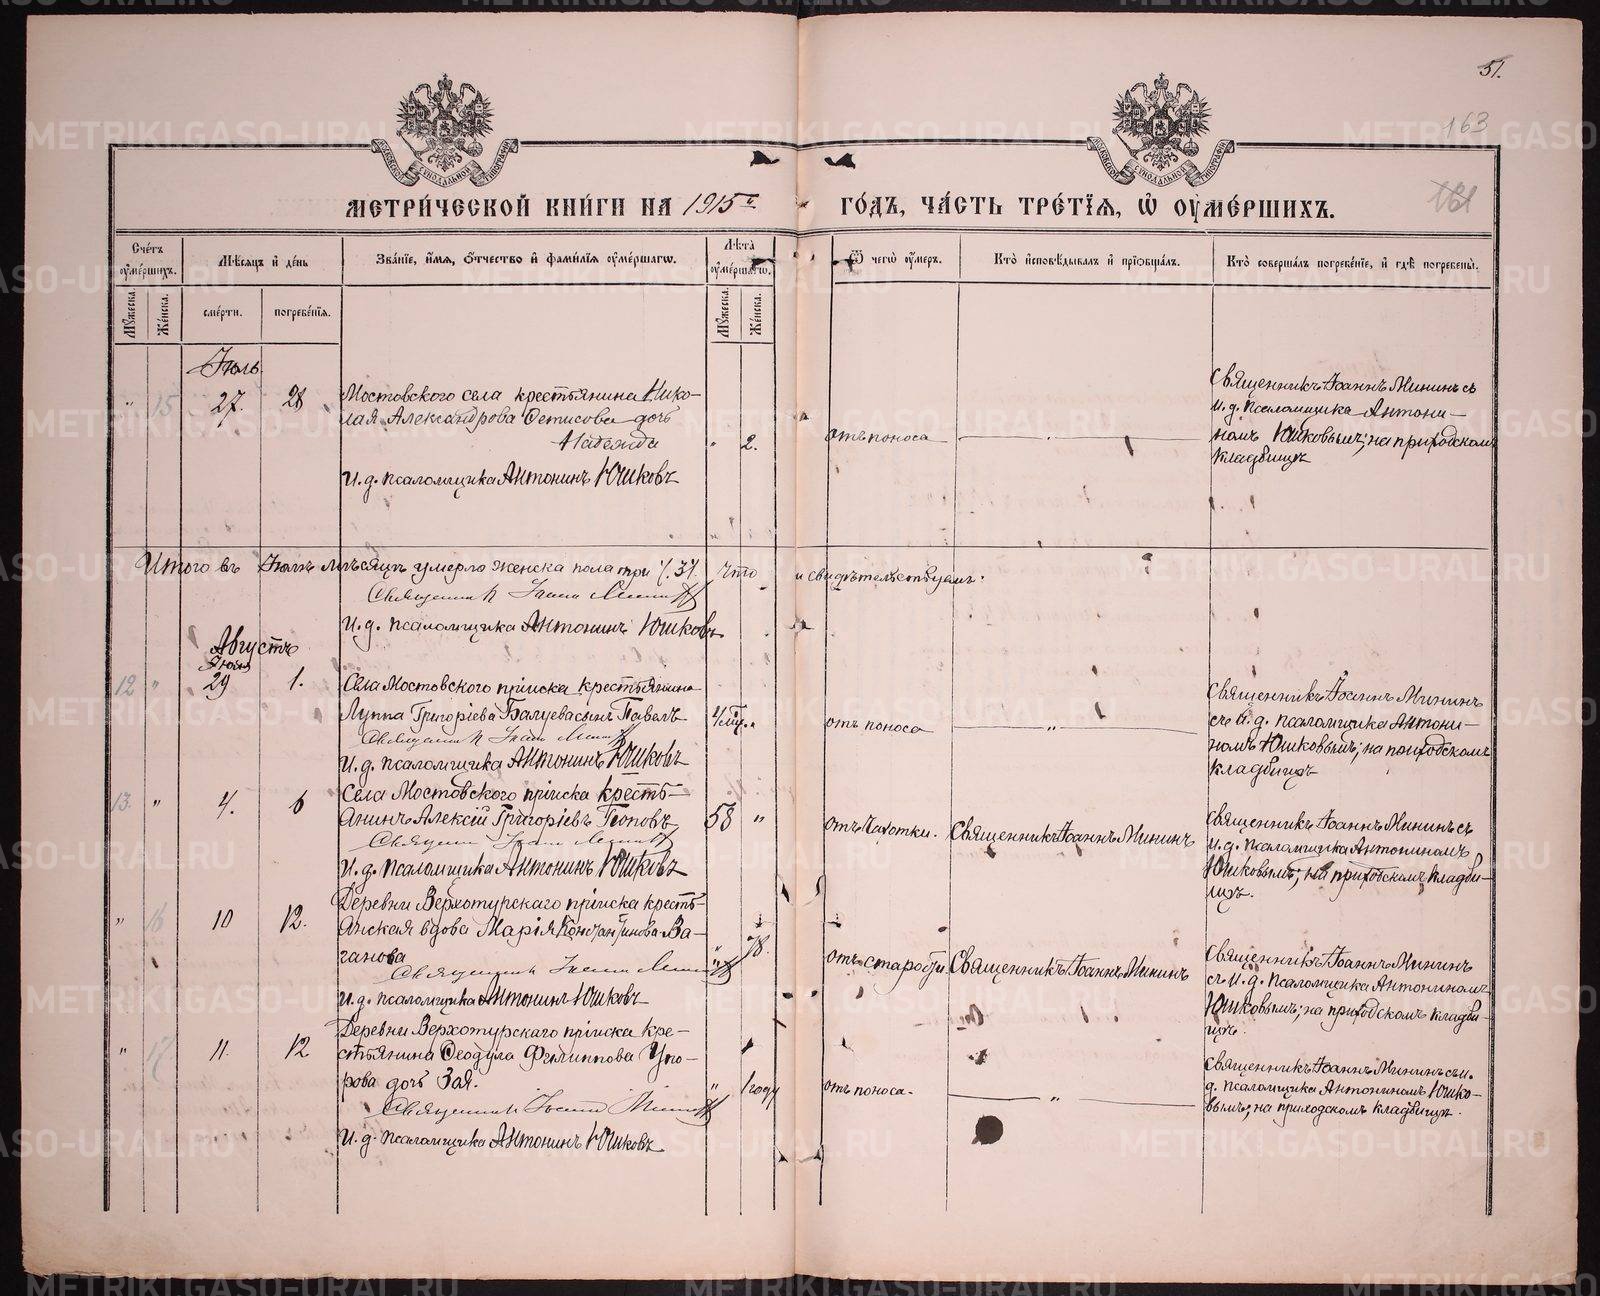 51.
163
161
МЕТРИ́ЧЕСКОЙ КНИ́ГИ НА 1915 й ГО́ДЪ, ЧА́СТЬ ТРЕ́ТЇѦ, Ѡ ОУМЕ́РШИХЪ.
Сче́тъ оуме́ршихъ.
Мѣ́сѧцъ и҆ де́нь
Зва́нїе, и҆́мѧ, ѻ҆́тчество и҆ фами́лїѧ оуме́ршагѡ.
Лѣ́та оуме́ршагѡ.
Ѿ чегѡ̀ оу́меръ.
Кто̀ и҆сповѣ́дывалъ и҆ прїѡбща́лъ.
Кто̀ соверша́лъ погребе́нїе, и҆ гдѣ̀ погребены̀.
Му́жеска.
Же́нска.
сме́рти.
погребе́нїѧ.
Му́жеска.
Же́нска.
Іюль
„ 15 27. 28
Мостовского села крестьянина Нико-
лая Александрова Фетисова дочь
Надежда
„ 2.
отъ поноса
„
Священникъ Іоаннъ Мининъ съ
и.д. псаломщика Антони-
номъ Юшковымъ; на приходскомъ
кладбищѣ
И.д. псаломщика Антонинъ Юшковъ
Итого въ Іюлѣ мѣсяцѣ умерло женска пола три /.3/. Что и свидѣтельствуемъ:
Священникъ Іоаннъ Мининъ
И.д. псаломщика Антонинъ Юшковъ
Августъ
Іюля
12 „ 29 1.
Села Мостовского приписка крестьянина
Луппа Григоріева Балуева сынъ Павелъ
Священникъ Іоаннъ Мининъ
И.д. псаломщика Антонинъ Юшковъ
отъ поноса
„
Священникъ Іоаннъ Мининъ
съ и.д. псаломщика Антони-
номъ Юшковымъ; на приходскомъ
кладбищѣ
13. „ 4. 6
Села Мостовского приписка кресть-
янинъ Алексій Григоріевъ Поповъ
Священникъ Іоаннъ Мининъ
И.д. псаломщика Антонинъ Юшковъ
58 „
отъ чахотки.
Священникъ Іоаннъ Мининъ
Священникъ Іоаннъ Мининъ съ
и.д. псаломщика Антониномъ
Юшковымъ; на приходскомъ кладби-
щѣ.
„ 16 10 12.
Деревни Верхотурскаго приписка кресть-
янская вдова Марія Константинова Ва-
ганова
Священникъ Іоаннъ Мининъ
И.д. псаломщика Антонинъ Юшковъ
„ 78.
отъ старости
Священникъ Іоаннъ Мининъ
Священникъ Іоаннъ Мининъ
съ и.д. псаломщика Антониномъ
Юшковымъ; на приходскомъ кладби-
щѣ.
„ 17 11. 12
Деревни Верхотурскаго приписка кре-
стьянина Феодула Филиппова Упо-
рова дочь Зоя.
Священникъ Іоаннъ Мининъ
И.д. псаломщика Антонинъ Юшковъ
„ 1 году
отъ поноса.
„
Священникъ Іоаннъ Мининъ съ и.
д. псаломщика Антониномъ Юшко-
вымъ; на приходскомъ кладбищѣ.
METRIKI.GASO-URAL.RU